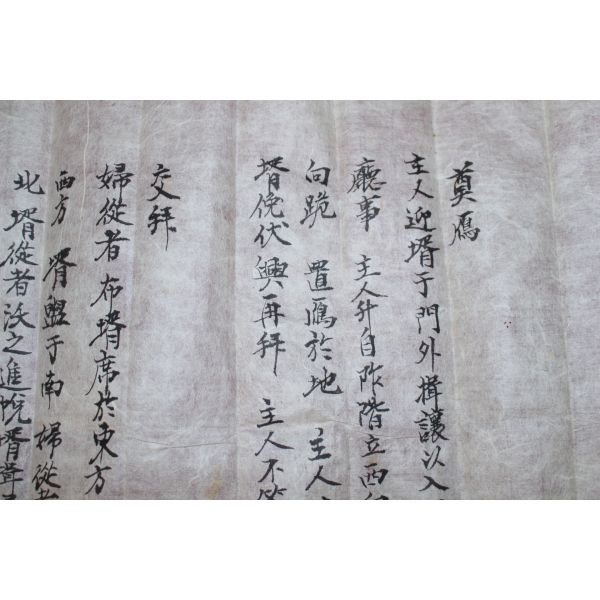 奠鴈
主人迎壻于門外揖讓以入
廳事 主人升自阼階立西
向跪 置鴈於地 主人
壻俛伏興再拜 主人不
交拜
婦從者布壻席於東方
西方 壻盥于南 婦從者
北 壻從者沃之進帨壻